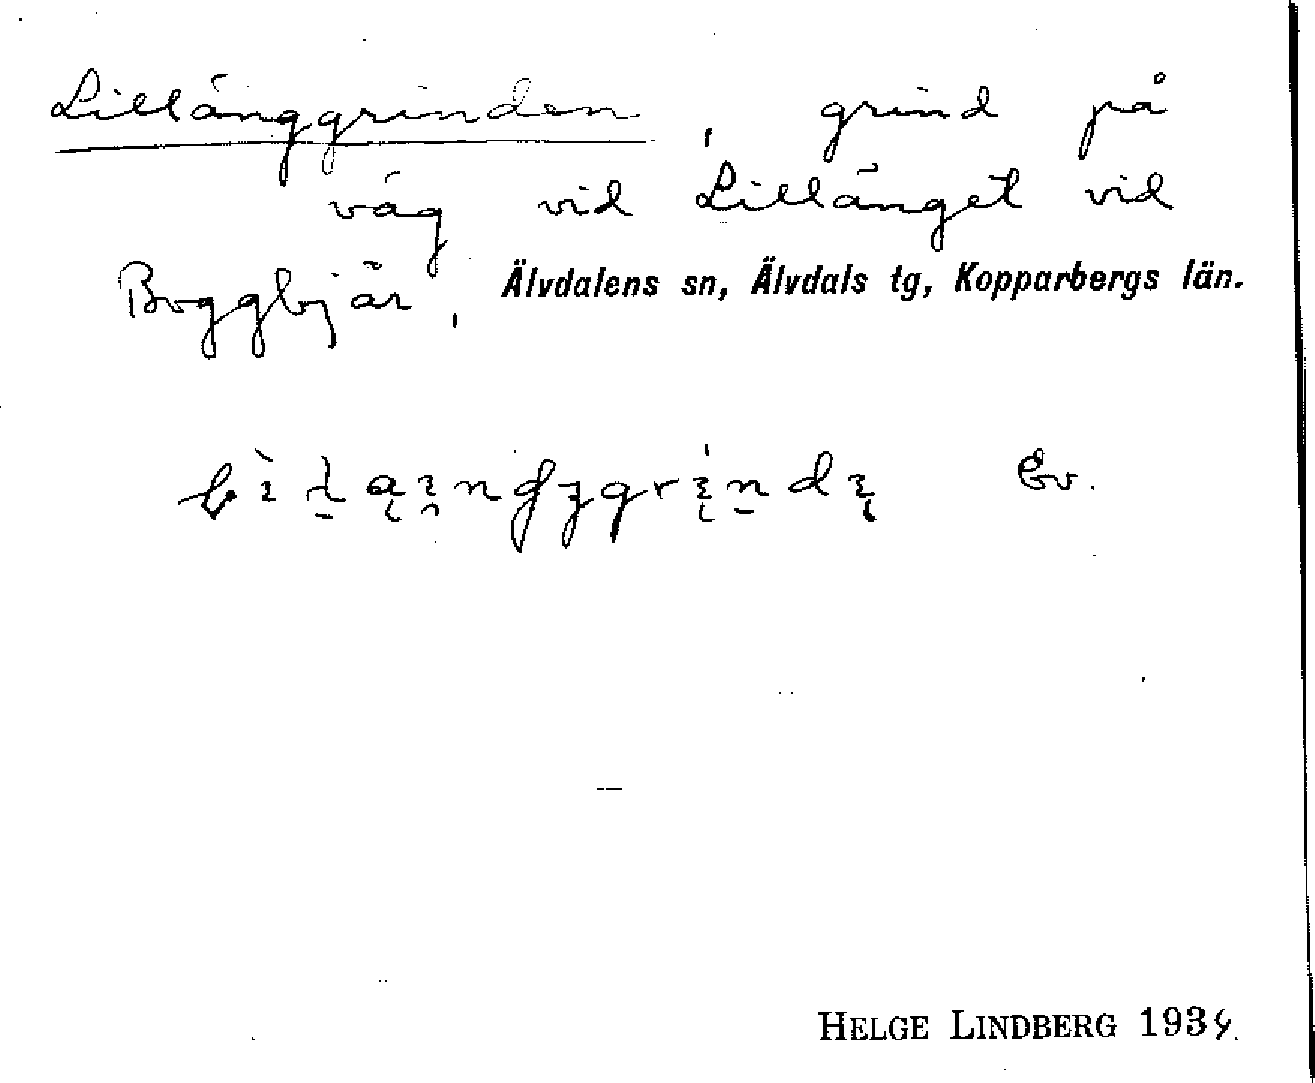 Lillänggrinden, grind på
väg vid Lillänget vid
Boggbjär, Älvdalens sn, Älvdals tg, Kopparbergs län.
Ev.
HELGE LINDBERG 1934.